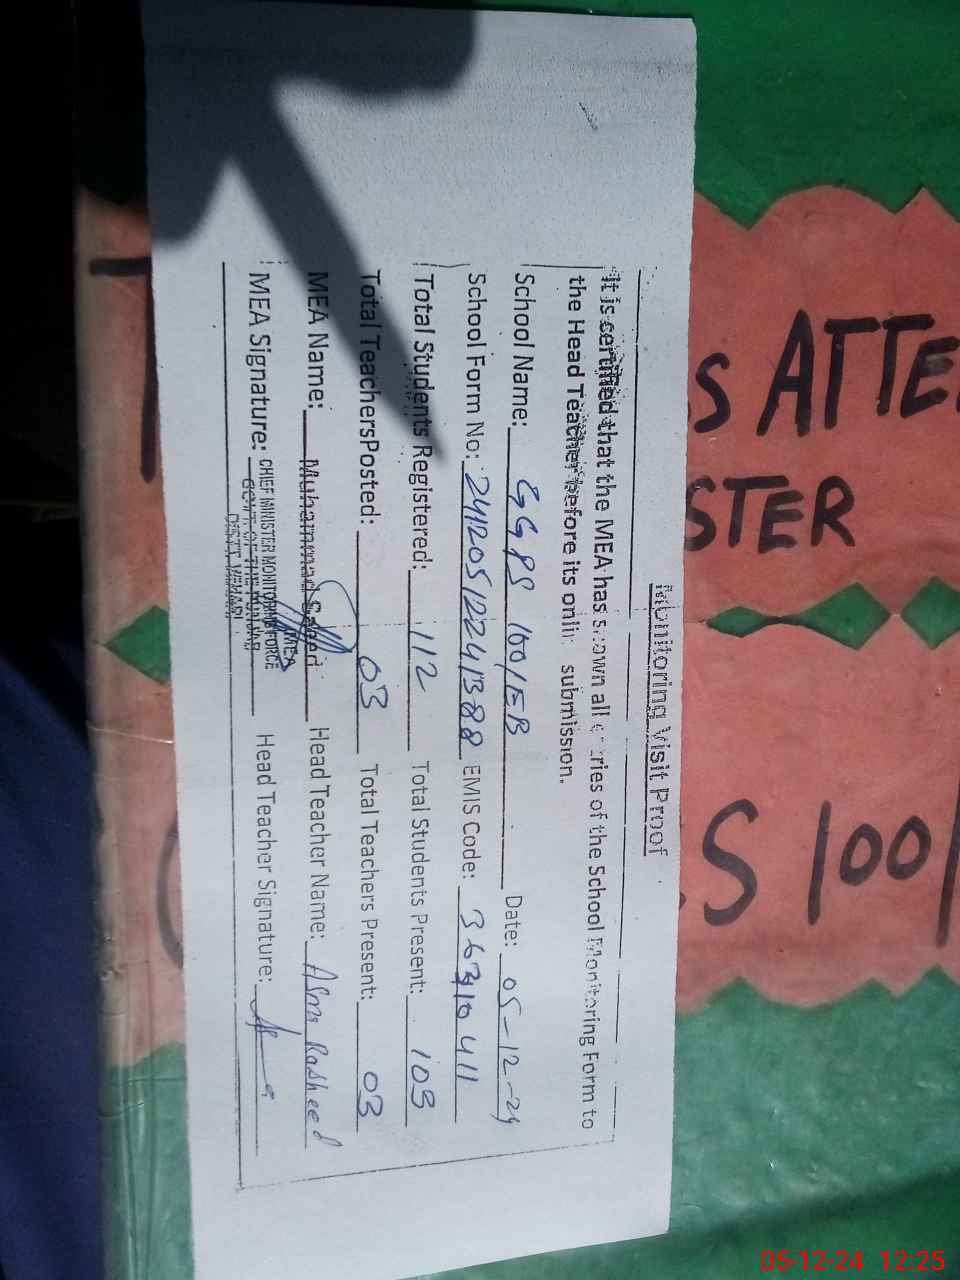 Monitoring Visit Proof
It is certified that the MEA has shown all entries of the School Monitoring Form to
the Head Teacher before its online submission.
School Name: GGPS 100/EB Date: 05-12-24
School Form No: 241205122241388 EMIS Code: 36310411
Total Students Registered: 112 Total Students Present: 109
Total TeachersPosted: 03 Total Teachers Present: 03
MEA Name: Muhammad Saeed Head Teacher Name: Asma Rasheed
MEA Signature: Head Teacher Signature:
MEA
CHIEF MINISTER MONITORING FORCE
GOVT OF THE PUNJAB
DISTT VEHARI
S ATTE
STER
S 100/
05-12-24 12:25